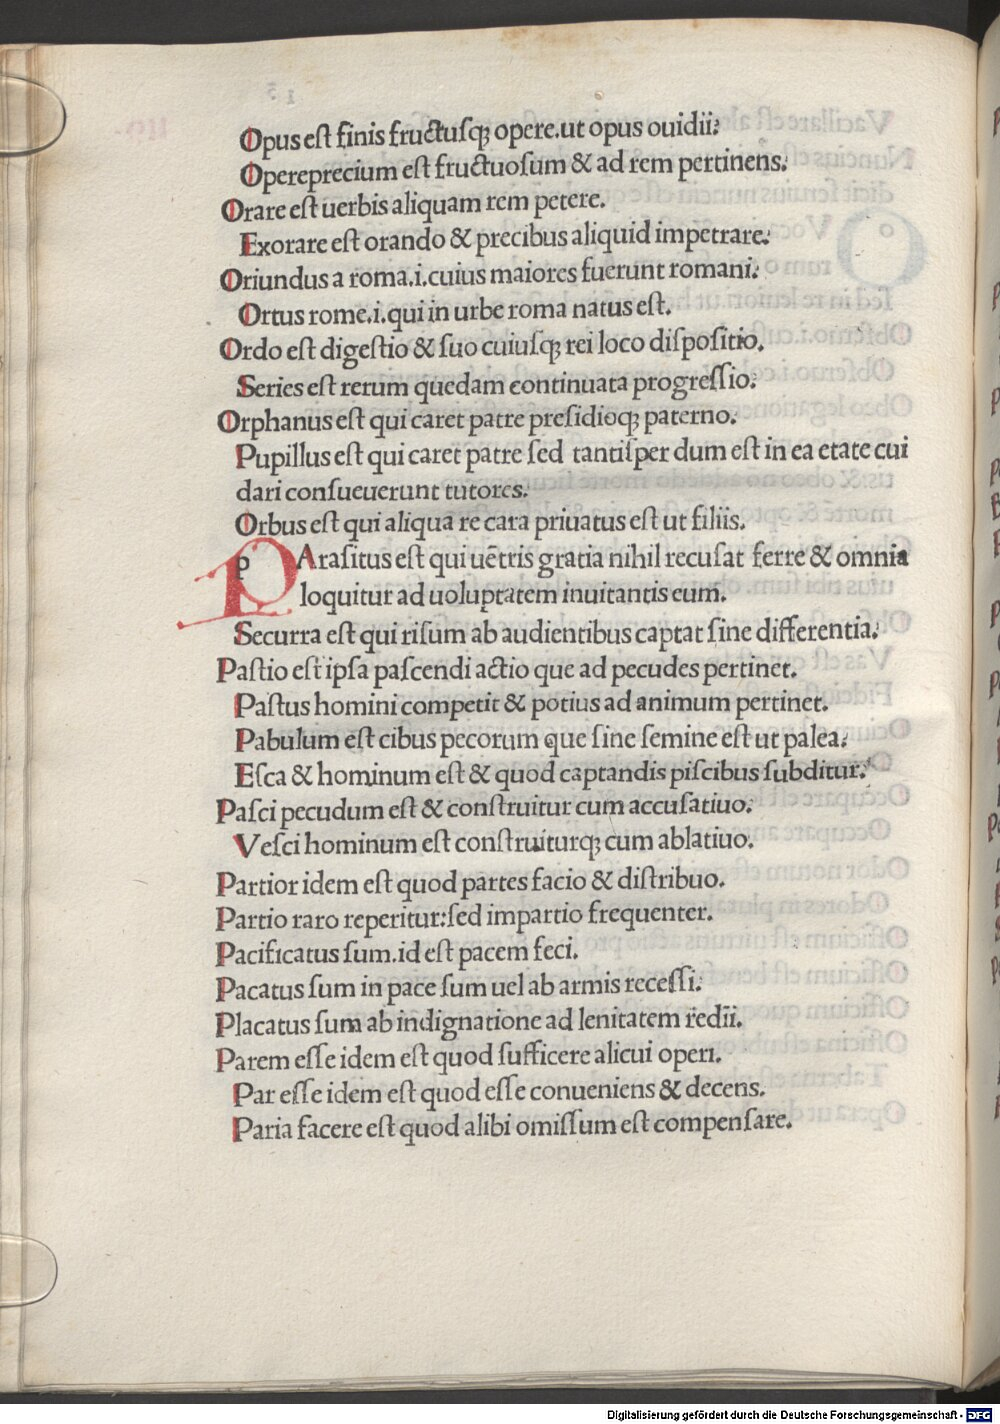 Opus eſt finis fructuſqꝫ opere.ut opus ouidii:
Opereprecium eſt fructuoſum & ad rem pertinens:
Orare eſt uerbis aliquam rem petere.
Exorare eſt orando & precibus aliquid impetrare:
Oriundus a roma.i.cuius maiores fuerunt romani:
Ortus rome.i.qui in urbe roma natus eſt.
Ordo eſt digeſtio & ſuo cuiuſqꝫ rei loco diſpoſitio.
Series eſt rerum quedam continuata progreſſio:
Orphanus eſt qui caret patre preſidioqꝫ paterno.
Pupillus eſt qui caret patre ſed tantiſper dum eſt in ea etate cui
dari conſueuerunt tutores:
Orbus eſt qui aliqua re cara priuatus eſt ut filiis.
PAraſitus eſt qui uētris gratia nihil recuſat ferre & omnia
loquitur ad uoluptatem inuitantis eum.
Securra eſt qui riſum ab audientibus captat ſine differentia:
Paſtio eſt ipſa paſcendi actio que ad pecudes pertinet.
Paſtus homini competit & potius ad animum pertinet.
Pabulum eſt cibus pecorum que ſine ſemine eſt ut palea:
Eſca & hominum eſt & quod captandis piſcibus ſubditur:
Paſci pecudum eſt & conſtruitur cum accuſatiuo:
Veſci hominum eſt conſtruiturqꝫ cum ablatiuo.
Partior idem eſt quod partes facio & diſtribuo.
Partio raro reperitur:ſed impartio frequenter.
Pacificatus ſum.id eſt pacem feci.
Pacatus ſum in pace ſum uel ab armis receſſi:
Placatus ſum ab indignatione ad lenitatem redii.
Parem eſſe idem eſt quod ſufficere alicui operi.
Par eſſe idem eſt quod eſſe conueniens & decens.
Paria facere eſt quod alibi omiſſum eſt compenſare.
Digitalisierung gefördert durch die Deutsche Forschungsgemeinschaft - DFG